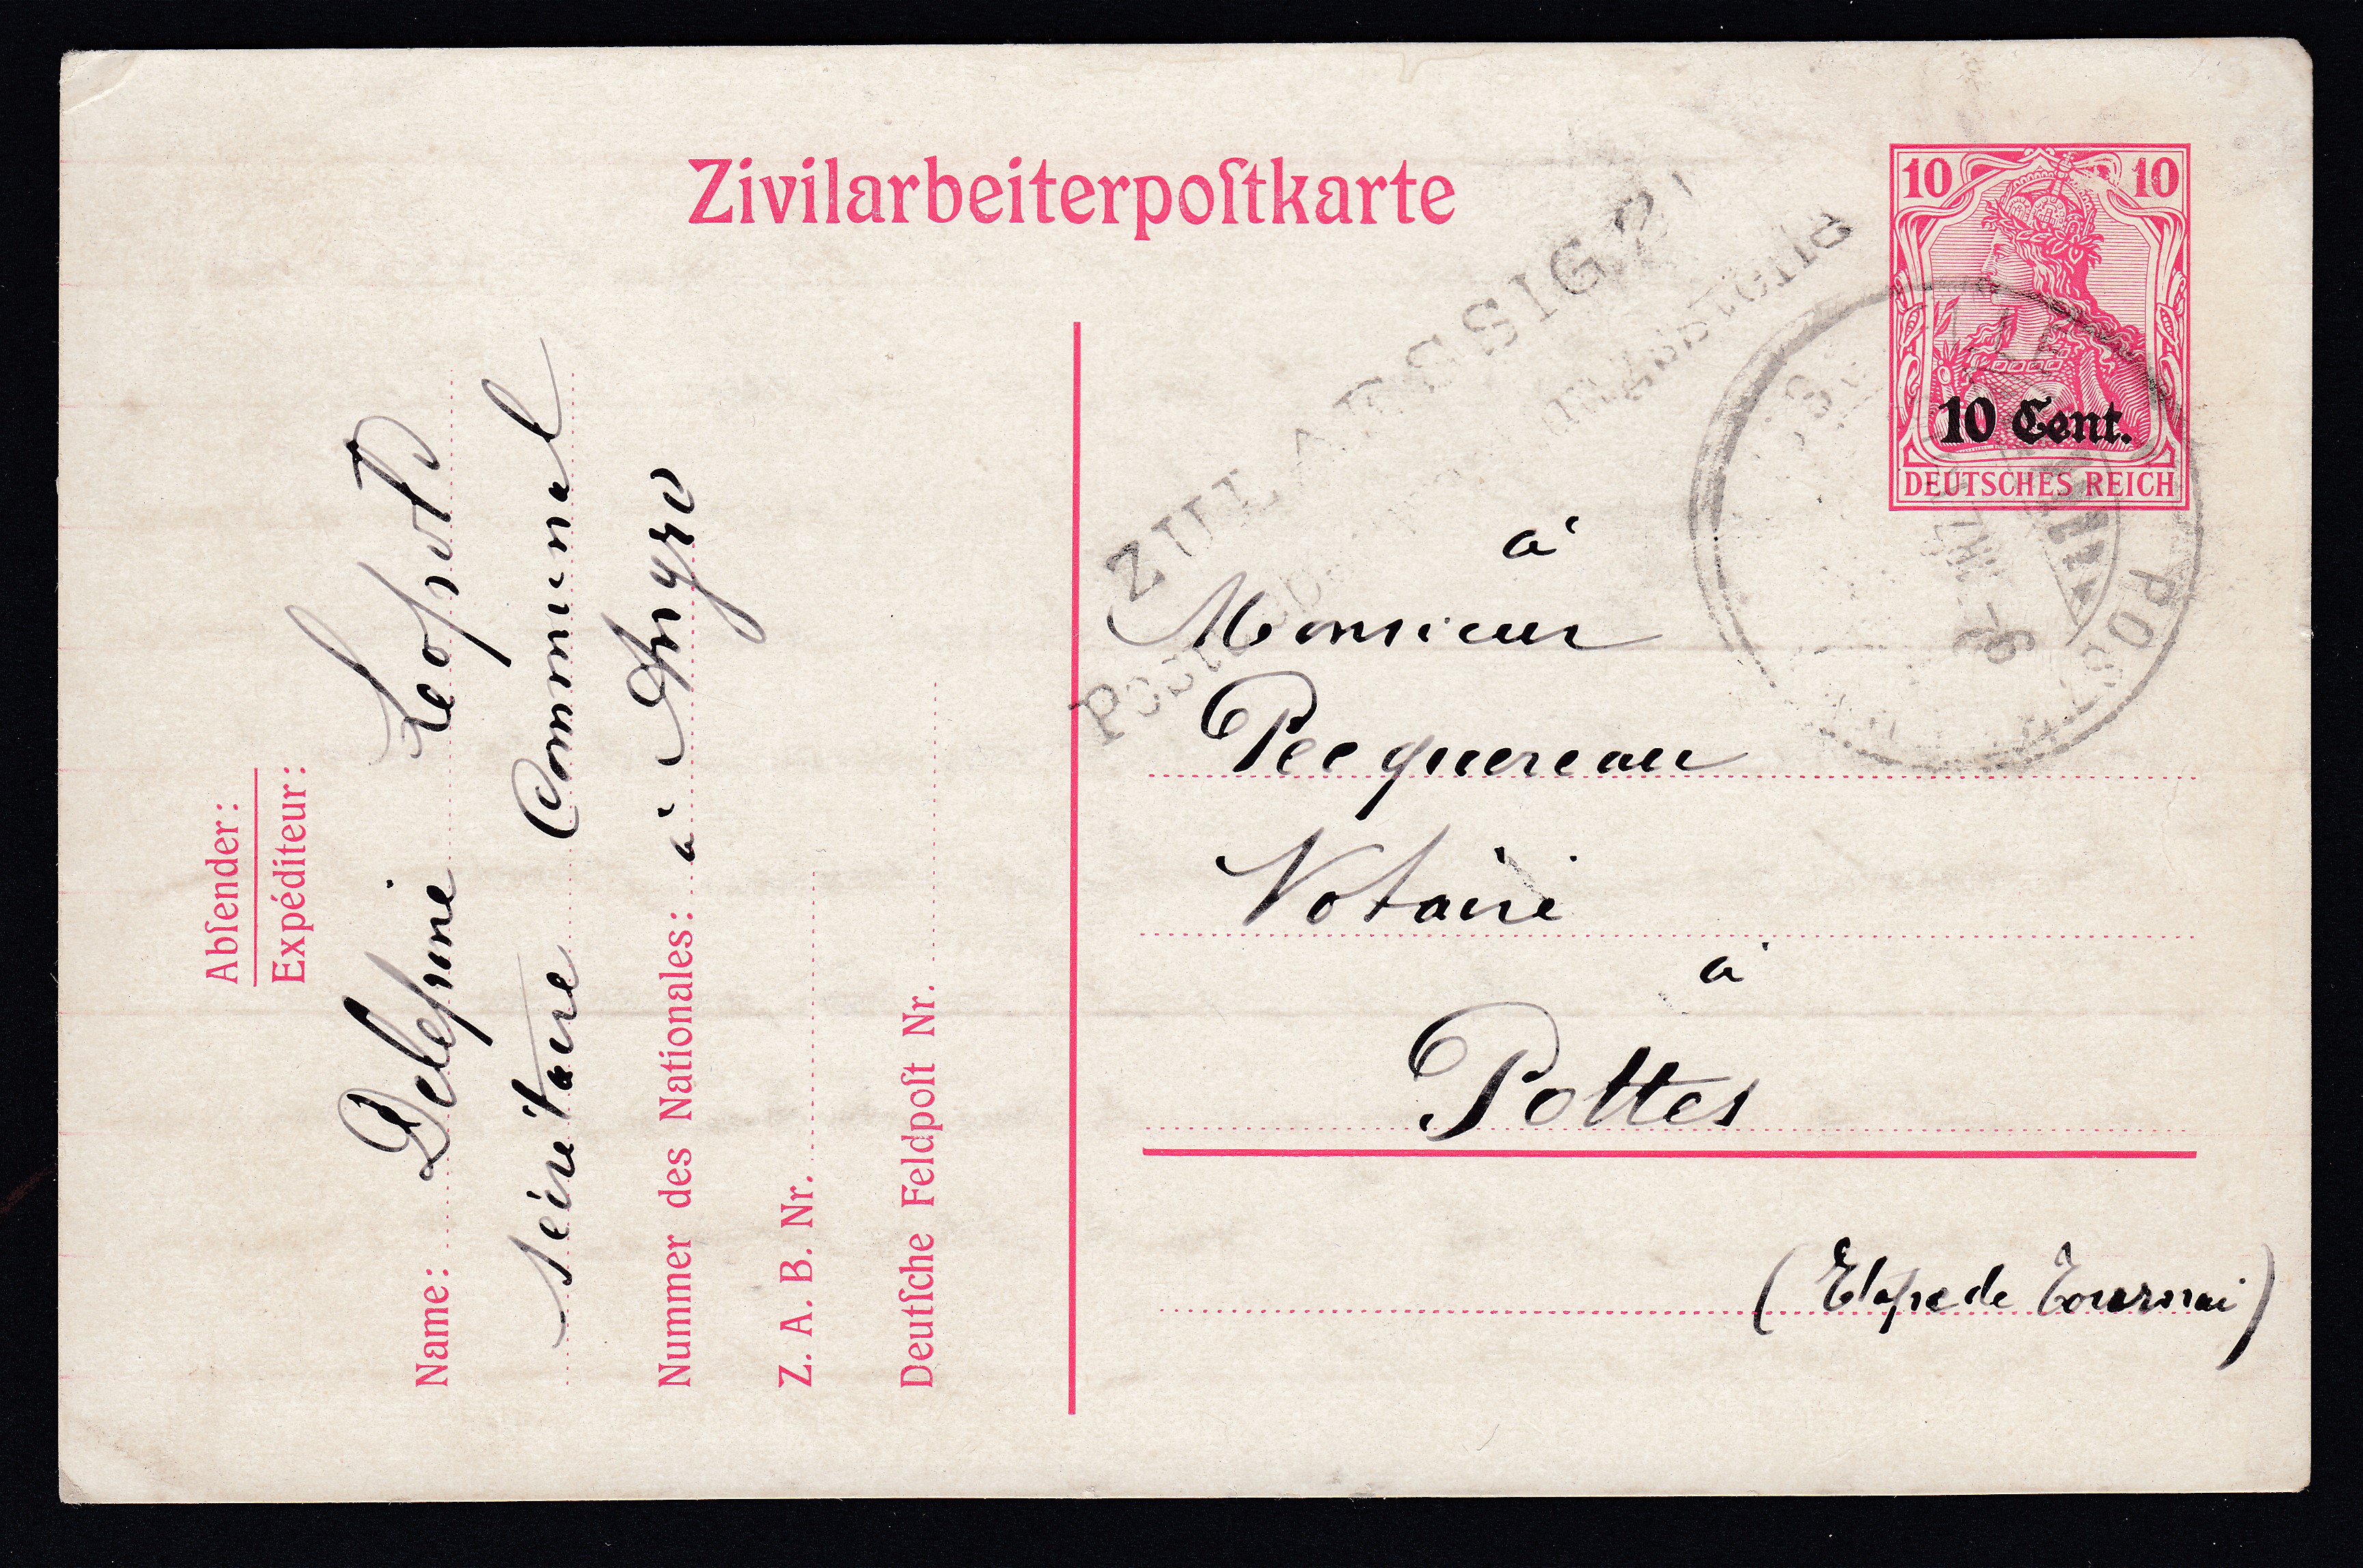 Zivilarbeiterpoſtkarte
10 10
10 Cent.
DEUTSCHES REICH
ZULAESSIG
Abſender:
Expéditeur:
Name: Delepine Leopold
secrétaire Communal
à Angre
Nummer des Nationales:
Z. A. B. Nr.
Deutſche Feldpoſt Nr.
à
Monsieur
Pecquereau
Notaire
à
Pottes
(Etape de Tournai)